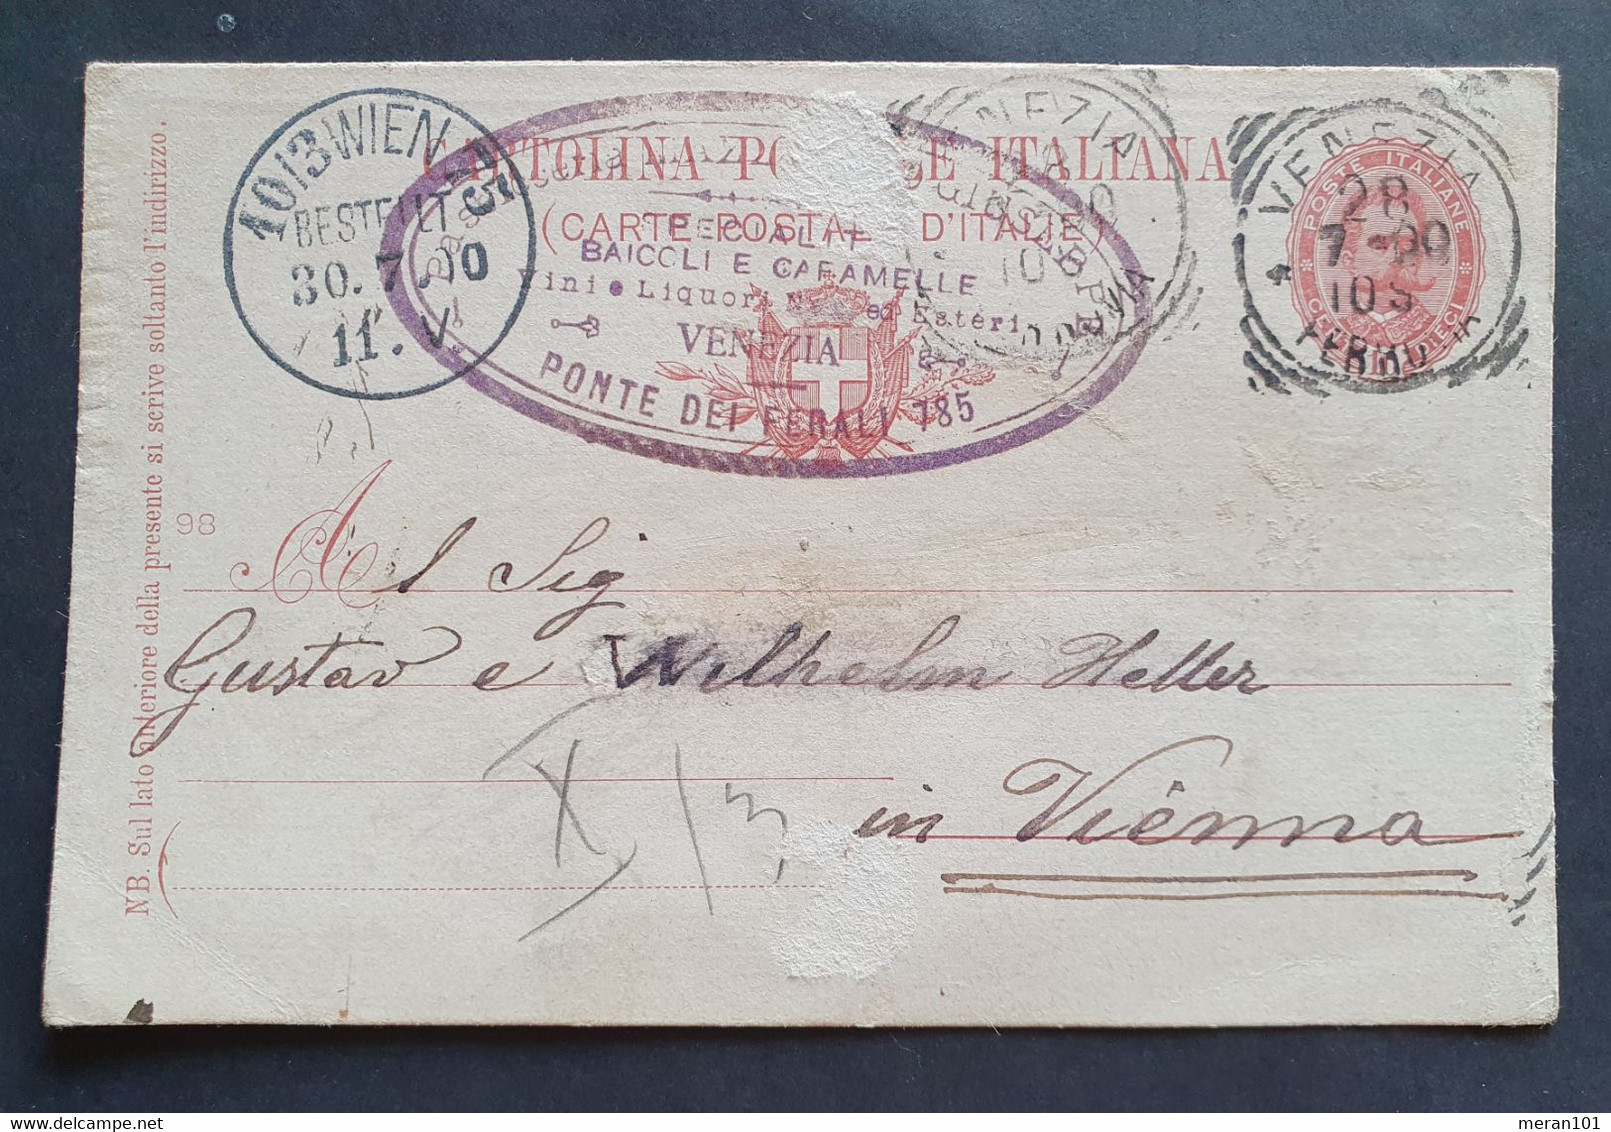 CARTOLINA POSTALE ITALIANA
(CARTE POSTALE D'ITALIE)
10/3 WIEN 75
BESTELLT
30. 7. 00
11. V
BAICOLI E CARAMELLE
Vini e Liquori ed Esteri
VENEZIA
PONTE DEI FERALI 785
VENEZIA
10 S
FERROVIA
VENEZIA
28
7-00
10 S
FERROVIA
POSTE ITALIANE
CENTESIMI DIECI
NB. Sul lato anteriore della presente si scrive soltanto l'indirizzo.
98
Al Sig
Gustav e Wilhelm Heller
in Viénna
meran101